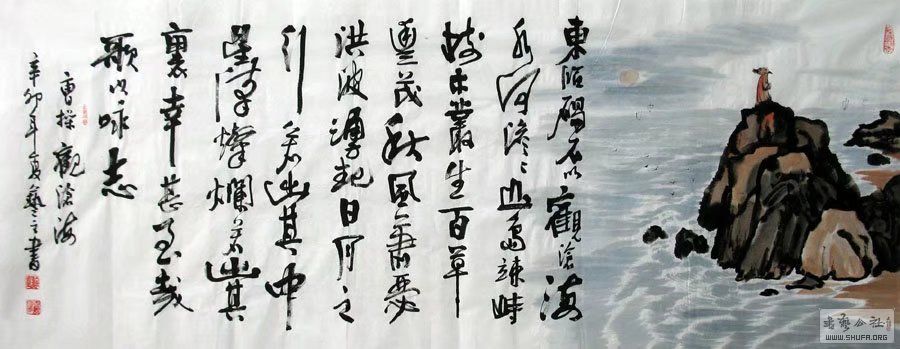 東臨碣石以觀滄海
水何澹々山島竦峙
樹木叢生百草
豐茂秋風蕭瑟
洪波湧起日月之
行若出其中
星漢燦爛若出其
裏幸甚至哉
歌以咏志
曹操觀滄海
辛卯年夏藝之書
書藝公社
WWW.SHUFA.ORG